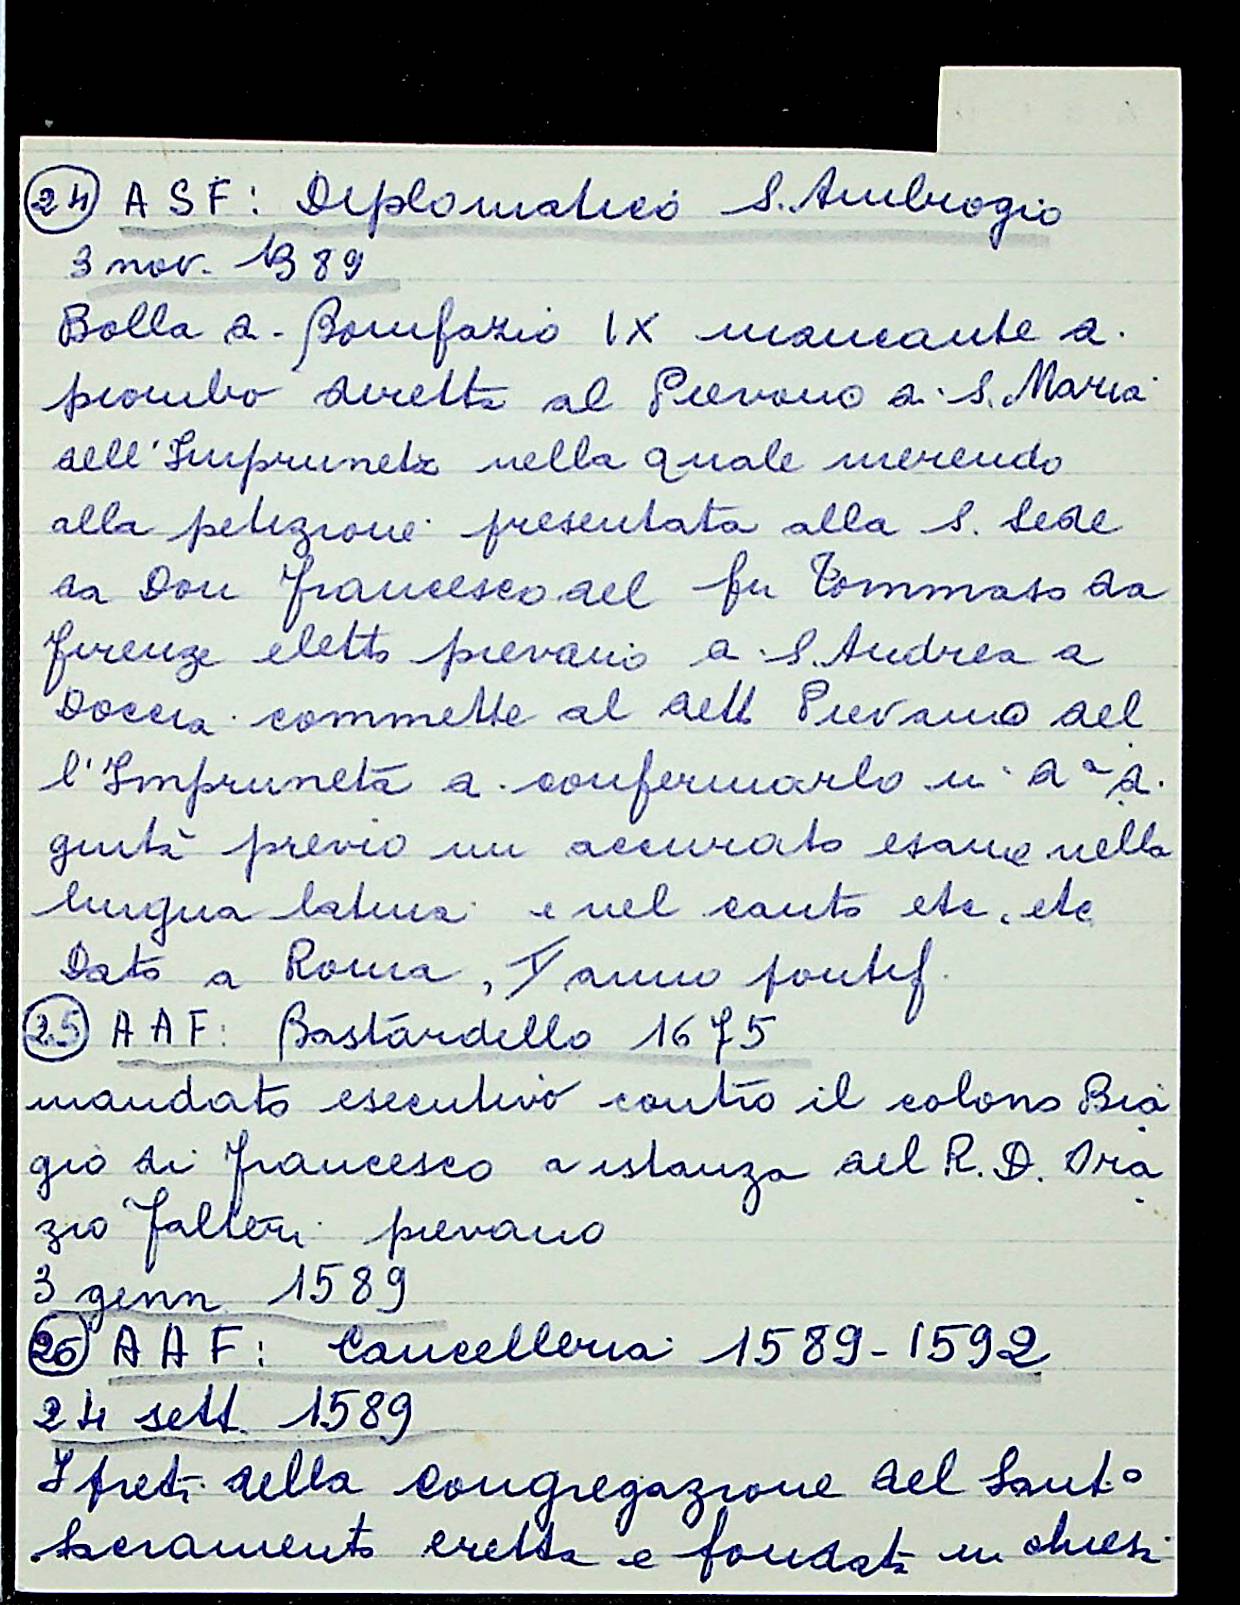 24 ASF: Diplomatico S. Ambrogio
3 nov. 1389
Bolla di Bonifazio IX mancante di
piombo diretta al Pievano di S. Maria
dell'Impruneta nella quale
alla petizione presentata alla S. Sede
da Don Francesco del fu Tommaso da
Firenze eletto pievano di S. Andrea a
Doccia commette al detto Pievano del
l'Impruneta di confermarlo in da di
gnità previo un accurato esame nella
lingua latina e nel canto etc. etc
Dato a Roma, anno pontif.
25 AAF: Bastardello 1675
mandato esecutivo contro il colono Bia
gio di Francesco a istanza del R. D. Ora
zio Falteri pievano
3 genn 1589
26 AAF: Cancelleria 1589-1592
24 sett. 1589
I preti della Congregazione del Sant.o
Sacramento eretta e fondata in chiesa